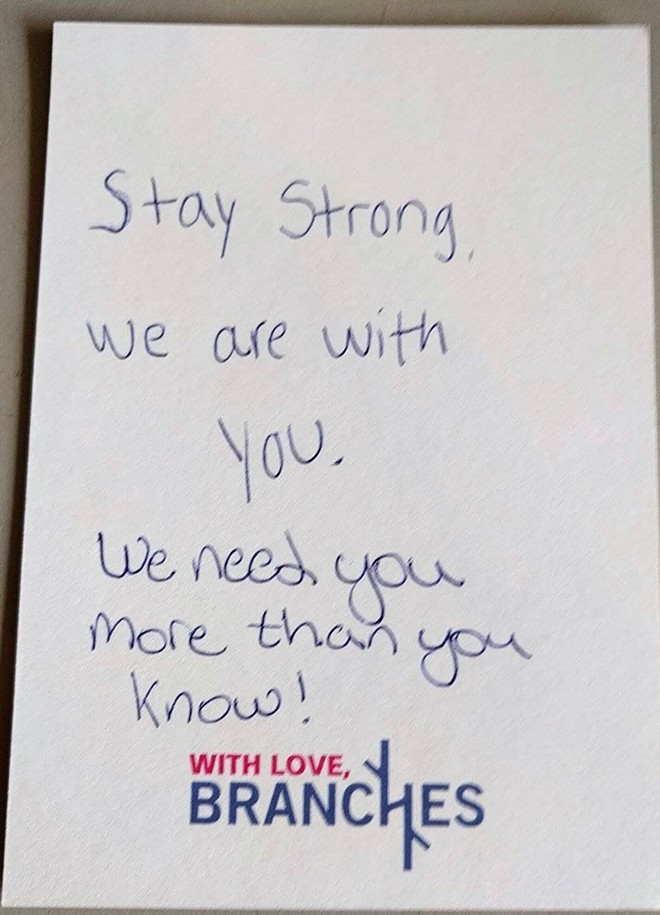 Stay Strong,
we are with
you.
We need you
more than you
know!
WITH LOVE,
BRANCHES